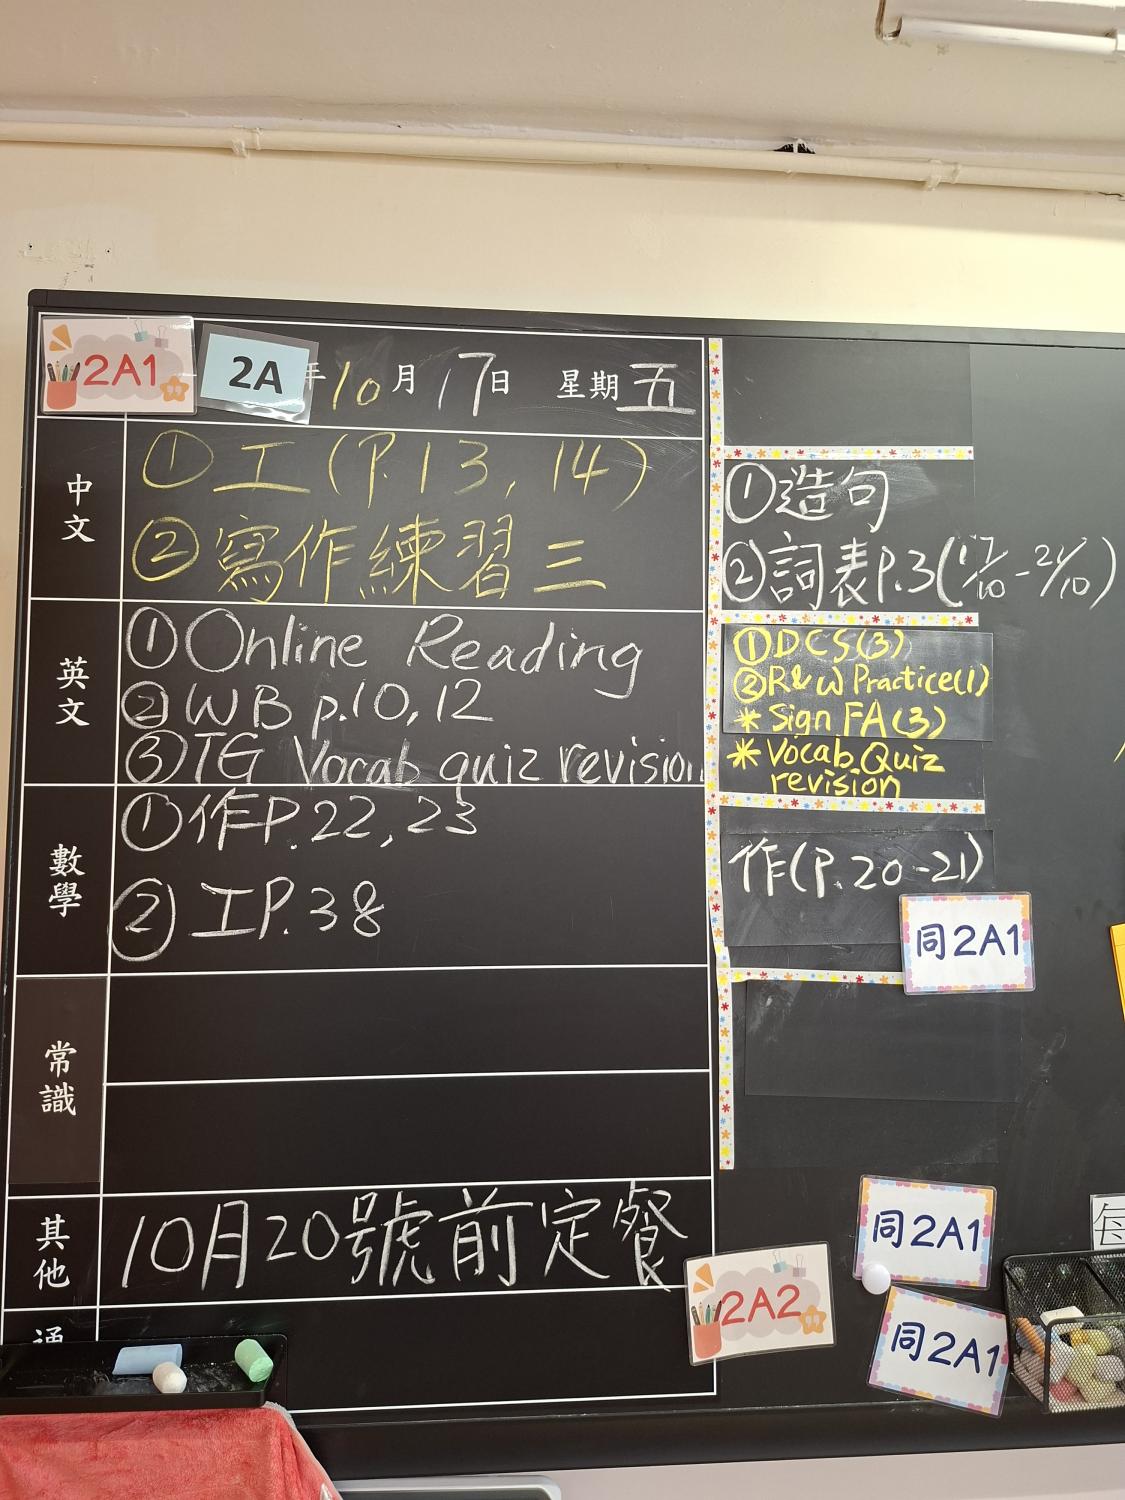 2A1
2A
年10月17日 星期五
中文
①工(P.13, 14)
②寫作練習三
英文
①Online Reading
②WB p.10, 12
③TG Vocab quiz revision
數學
①作P.22, 23
②工P.38
常識
其他
10月20號前定餐
通
①造句
②詞表P.3(17/10-21/10)
①DCS(3)
②R&W Practice(1)
* Sign FA(3)
* Vocab Quiz
revision
作(P.20-21)
同2A1
同2A1
2A2
同2A1
每